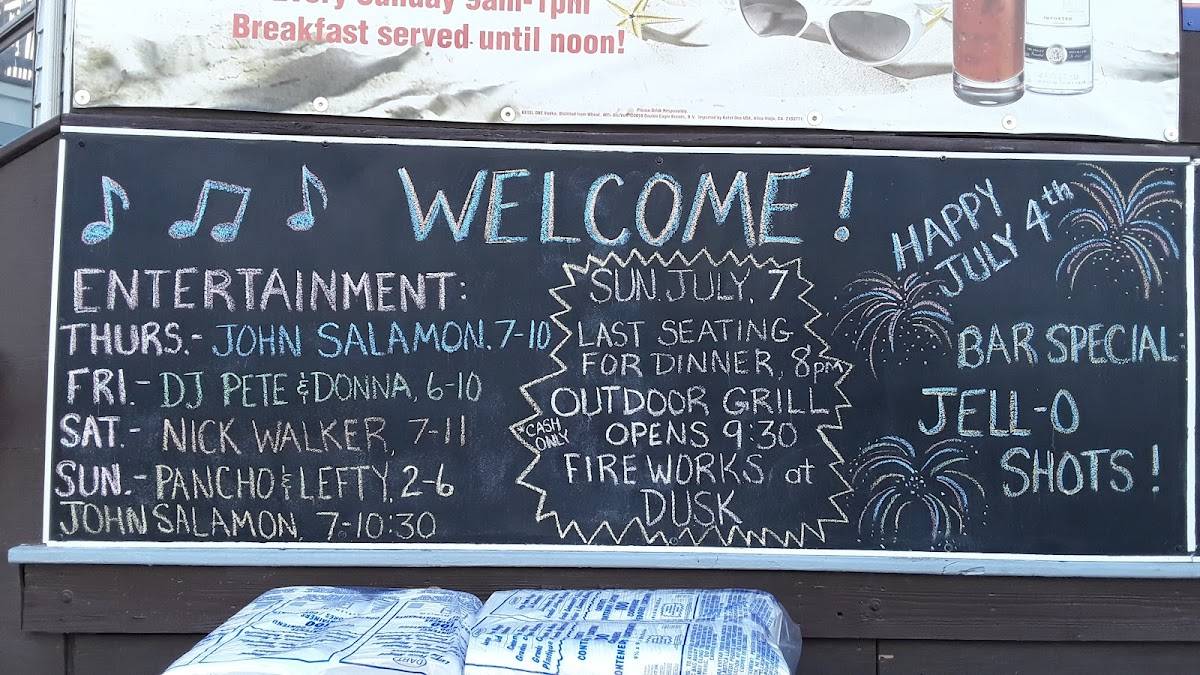 Every Sunday 9am-1pm
Breakfast served until noon!
WELCOME!
ENTERTAINMENT:
THURS.- JOHN SALAMON. 7-10
FRI.- DJ PETE & DONNA, 6-10
SAT.- NICK WALKER, 7-11
SUN.- PANCHO & LEFTY, 2-6
JOHN SALAMON, 7-10:30
SUN. JULY, 7
LAST SEATING
FOR DINNER, 8pm
OUTDOOR GRILL
*CASH ONLY OPENS 9:30
FIREWORKS at
DUSK
HAPPY
JULY 4th
BAR SPECIAL:
JELL-O
SHOTS!
IMPORTED
Please Drink Responsibly.
DART